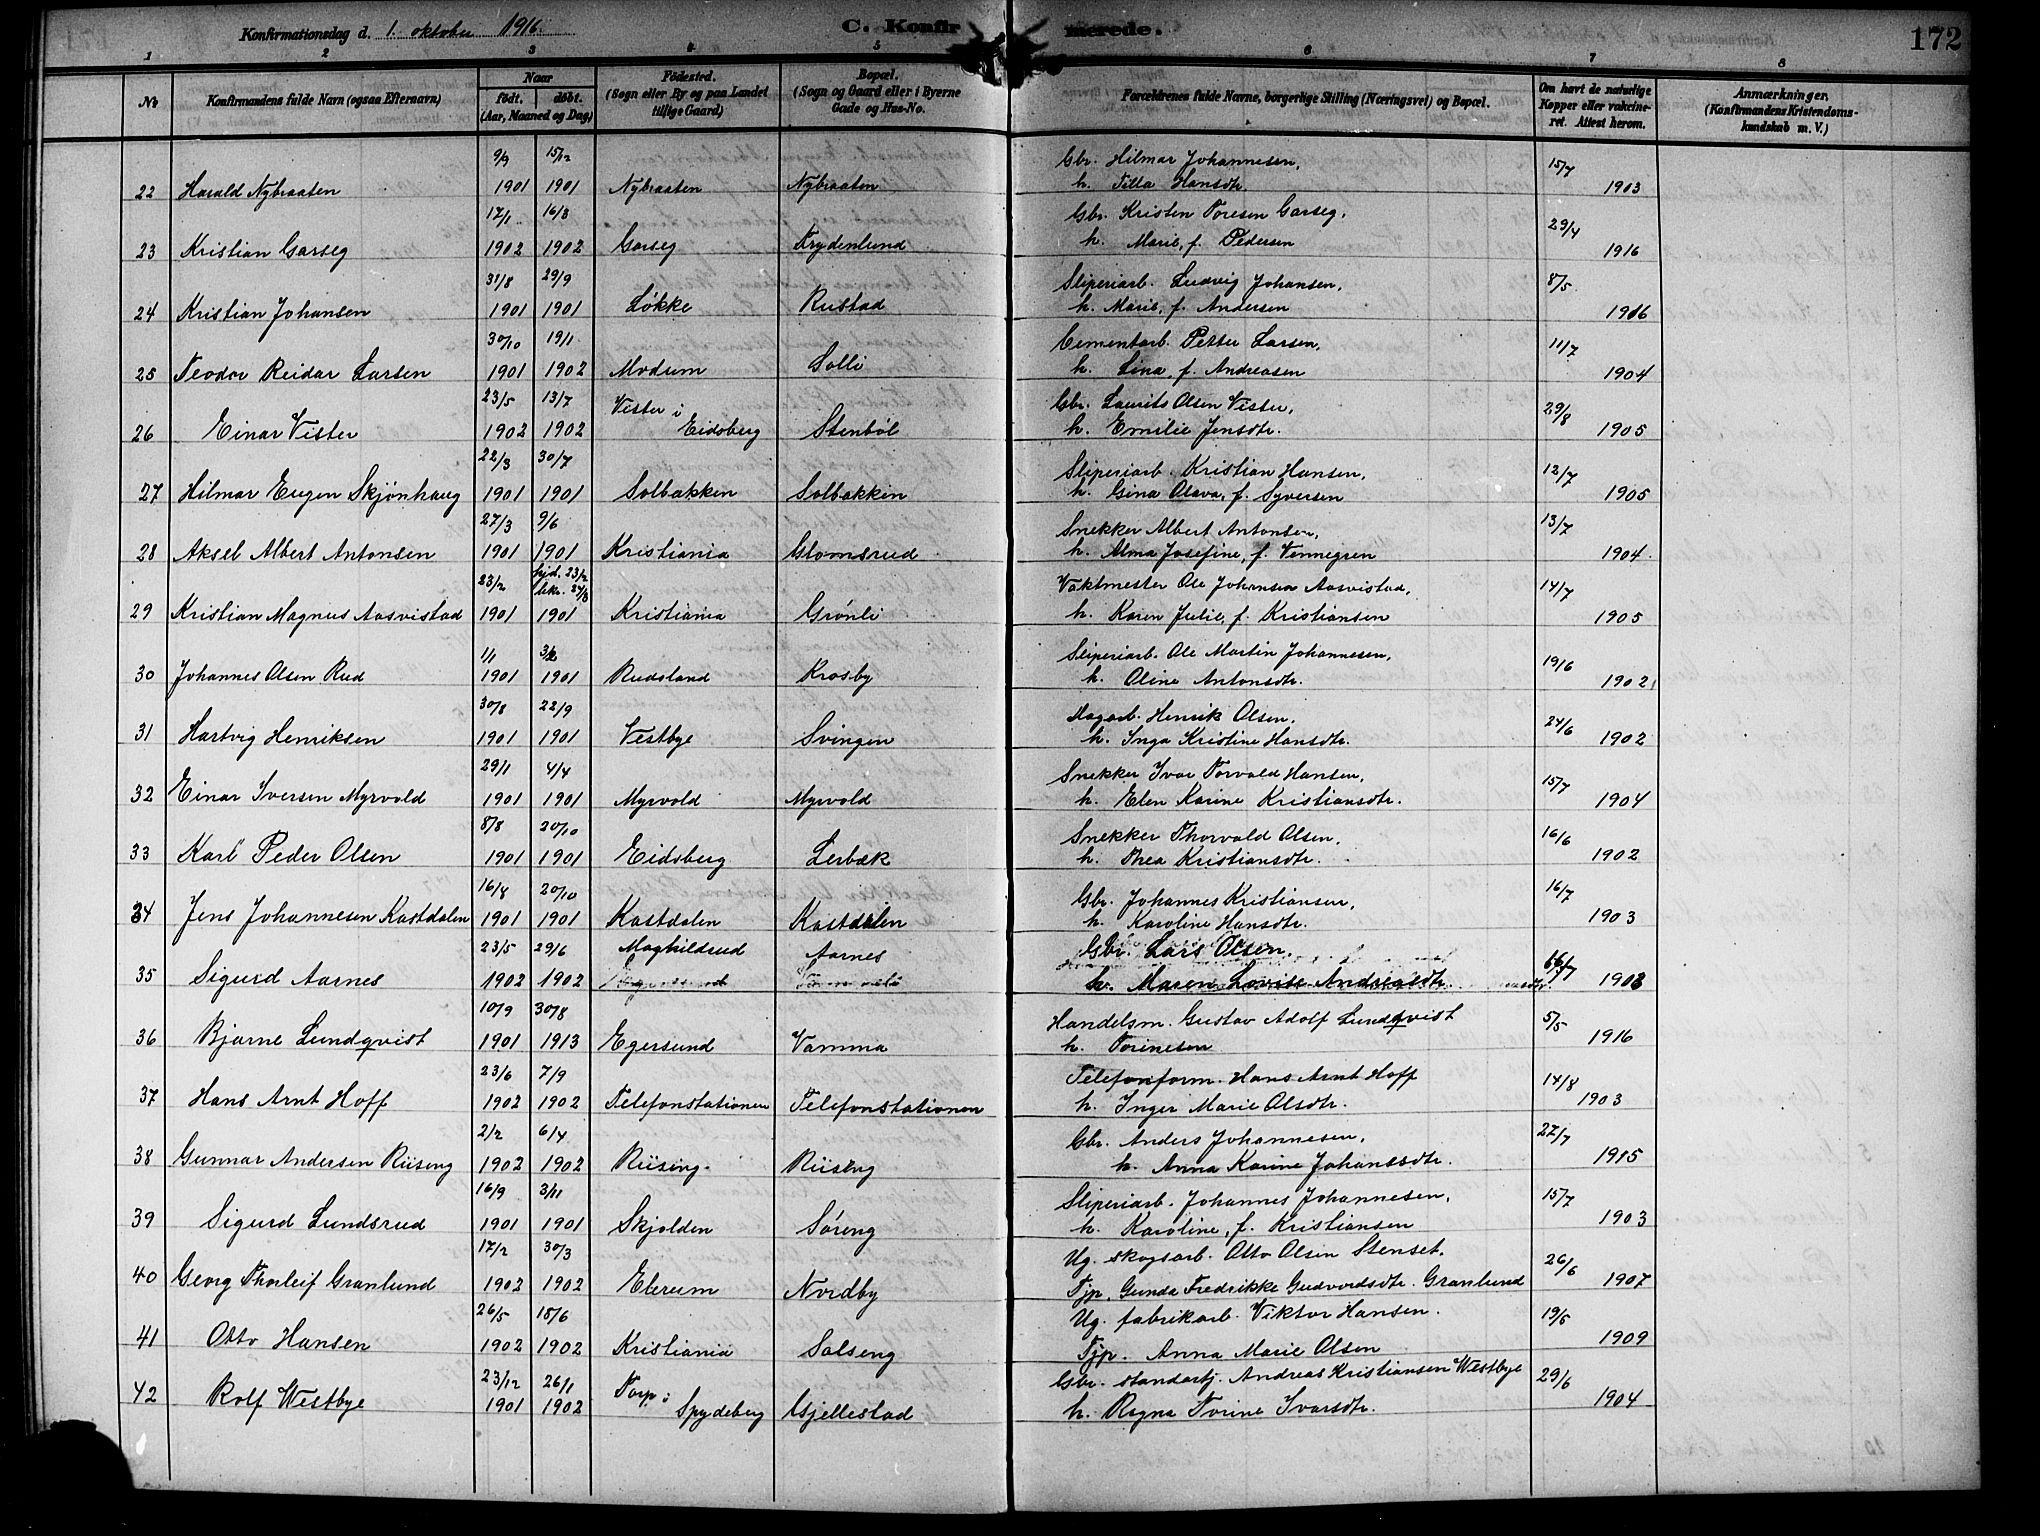 Konfirmationsdag d. 1. oktober 1916. C. Konfirmerede. 172
1 2 3 4 5 6 7 8
No
Konfirmandens fulde Navn (ogsaa Efternavn)
Naar
født. døbt.
(Aar, Maaned og Dag)
Fødested.
(Sogn eller By og paa Landet
tillige Gaard)
Bopæl.
(Sogn og Gaard eller i Byerne
Gade og Hus-No.
Forældrenes fulde Navne, borgerlige Stilling (Næringsvei) og Bopæl.
Om havt de naturlige
Kopper eller vakcine-
ret. Attest herom.
Anmærkninger.
(Konfirmandens Kristendoms-
kundskab m. V.)
9/9 15/12 Gbr. Hilmar Johannesen, 15/7
22 Harald Nybraaten 1901 1901 Nybraaten Nybraaten h. Tilla Hansdtr. 1903
17/1 16/3 Gbr. Kristen Toresen Garseg, 29/4
23 Kristian Garseg 1902 1902 Garseg Frydenlund h. Marie, f. Pedersen 1916
31/8 29/9 Sliperiarb. Ludvig Johansen, 8/5
24 Kristian Johansen 1901 1901 Løkke Rustad h. Marie, f. Andersen 1916
30/10 19/1 Cementarb. Petter Larsen, 11/7
25 Teodor Reidar Larsen 1901 1902 Modum Solli h. Lina, f. Andreasen 1904
23/5 13/7 Vister i Gbr. Laurits Olsen Vister, 29/8
26 Einar Vister 1902 1902 Eidsberg Stenbøl h. Emilie Jensdtr. 1905
22/3 30/7 Sliperiarb. Kristian Hansen, 12/7
27 Hilmar Eugen Skjønhaug 1901 1901 Solbakken Solbakken h. Gina Olava, f. Syversen 1905
27/3 9/6 Snekker Albert Antonsen, 13/7
28 Aksel Albert Antonsen 1901 1901 Kristiania Glomsrud h. Alma Josefine, f. Vennegren 1904.
23/2 hjd. 23/2 Vaktmester Ole Johansen Aasvistad, 14/7
29 Kristian Magnus Aasvistad 1901 1901 Kristiania Grønli h. Karen Julie, f. Kristiansen 1905
1/1 Sliperiarb. Ole Martin Johannesen, 19/6
30 Johannes Olsen Rud 1901 1901 Rudsland Krosby h. Oline Antonsdtr. 1902
30/8 22/9 Henrik Olsen, 24/6
31 Hartvig Henriksen 1901 1901 Vestbye Svingen h. Inga Kristine Hansdtr. 1902
29/1 4/4 Snekker Ivar Torvald Hansen, 15/7
32 Einar Iversen Myrvold 1901 1901 Myrvold Myrvold h. Elen Karine Kristiansdtr. 1904
8/8 20/10 Snekker Thorvald Olsen, 16/6
33 Karl Peder Olsen 1901 1901 Eidsberg Lerbæk h. Thea Kristiansdtr. 1902
16/8 20/10 Gbr. Johannes Kristiansen, 16/7
34 Jens Johannesen Kastdalen 1901 1901 Kastdalen Kastdalen h. Karoline Hansdtr. 1903
23/5 29/6 Maghildrud Aarnes Gbr. Lars Olsen,
35 Sigurd Aarnes 1902 1902 h. Maren Lovise Andreasdtr. 1903
10/9 30/8 Handelsm. Gustav Adolf Lundqvist 5/5
36 Bjarne Lundqvist 1901 1913 Egersund Vamma h. Torinesen 1916
23/6 7/9 Telefonform. Hans Arnt Hoff 14/8
37 Hans Arnt Hoff 1902 1902 Telefonstationen Telefonstationen h. Inger Marie Olsdtr. 1903
2/2 6/4 Gbr. Anders Johannesen, 27/7
38 Gunnar Andersen Riiseng 1902 1902 Riising Riiseng h. Anna Karine Johansdtr. 1915
16/9 3/11 Sliperiarb. Johannes Johannesen, 15/7
39 Sigurd Lundsrud 1901 1901 Skjolden Søreng h. Karoline, f. Kristiansen 1903
17/2 30/3 Ug. skogsarb. Otto Olsen Stenset, 26/6
40 Georg Thorleif Granlund 1902 1902 Elverum Nordby Tjp. Gunda Fredrikke Gudvordsdtr. Granlund 1907
26/5 18/6 Ug. fabrikarb. Viktor Hansen. 19/6
41 Otto Hansen 1902 1902 Kristiania Solseng Tjp. Anna Marie Olsen 1909
23/12 26/1 Torp i Gbr. standartj. Andreas Kristiansen Westbye 29/6
42 Rolf Westbye 1901 1902 Spydeberg Gjellestad h. Ragna Torine Ivarsdtr. 1904